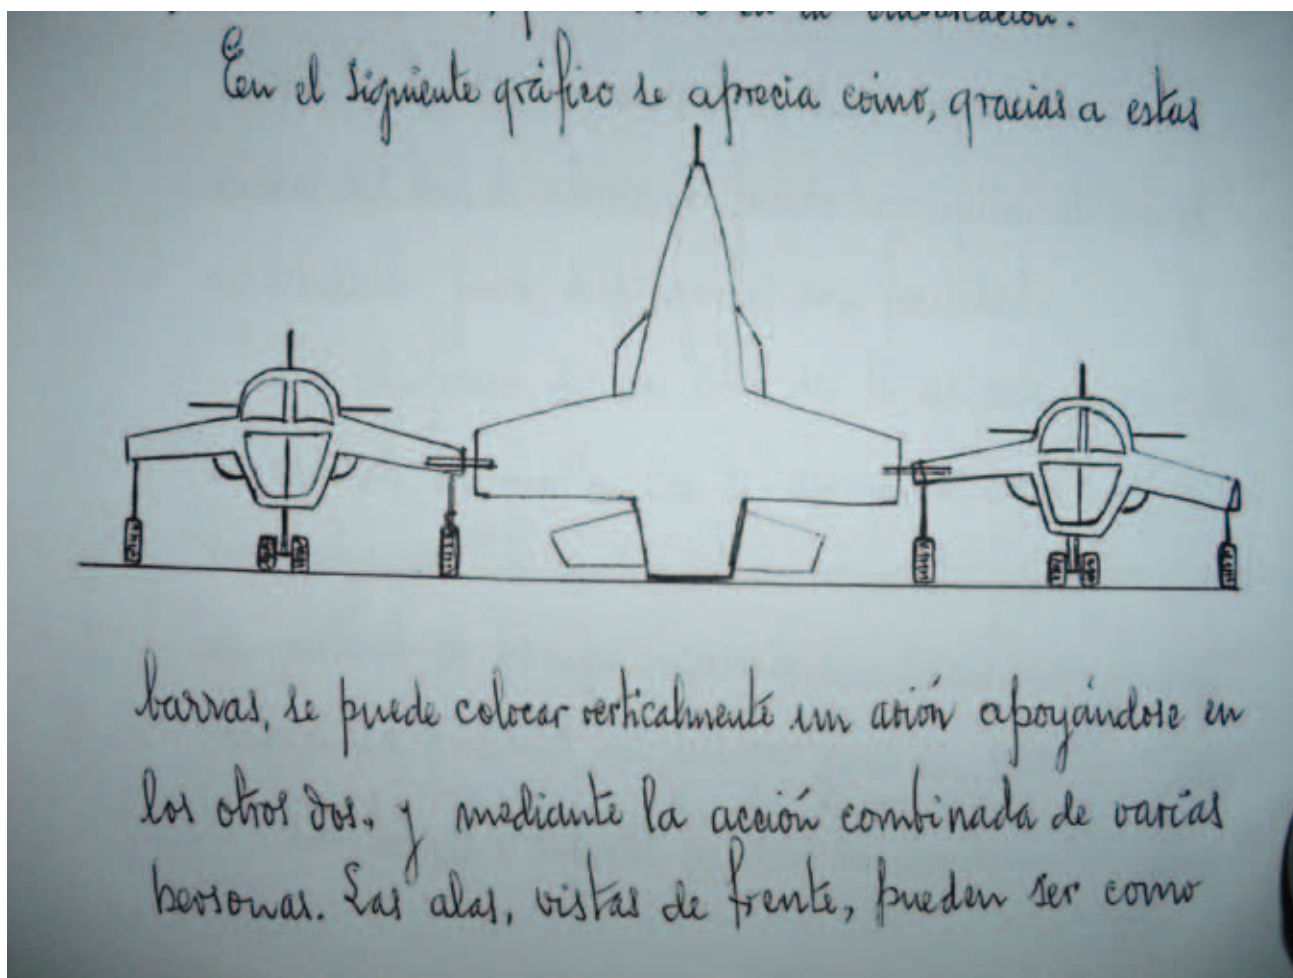 en la
En el siguiente gráfico se aprecia cómo, gracias a estas
barras, se puede colocar verticalmente un avión apoyándose en
los otros dos, y mediante la acción combinada de varias
personas. Las alas, vistas de frente, pueden ser como